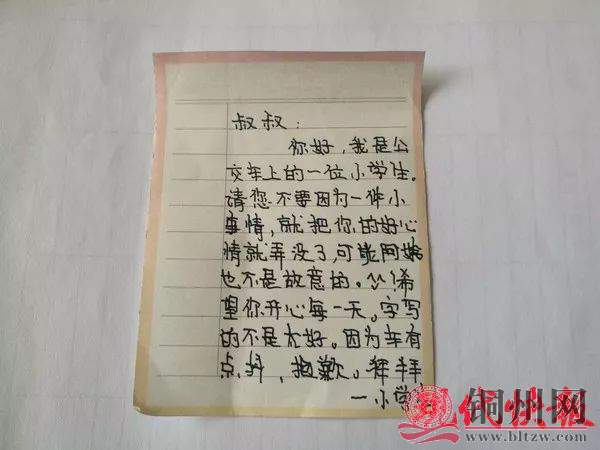 叔叔:
你好,我是公
交车上的一位小学生.
请您不要因为一件小
事情,就把你的好心
情就弄没了,可能阿姨
也不是故意的。^^!希
望你开心每一天。字写
的不是太好。因为车有
点抖,抱歉。拜拜
一小学
铜州网
www.bltzw.com